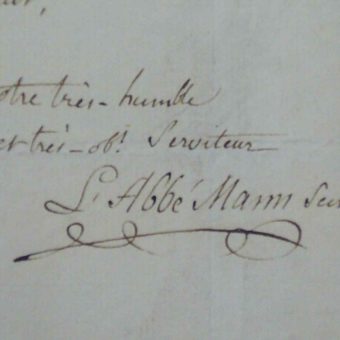 otre très-humble
et très-ob.t Serviteur
L'Abbé Mann